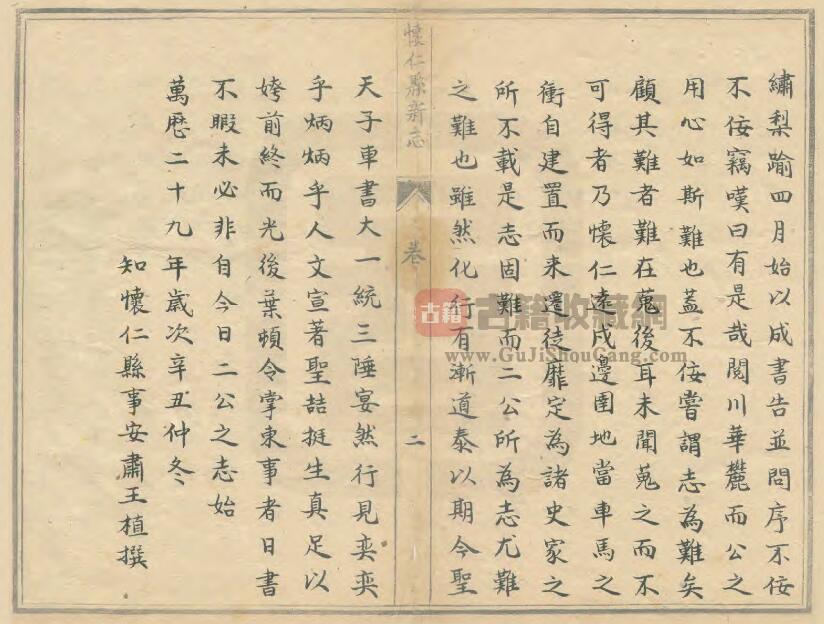 繡梨踰四月始以成書告並問序不佞
不佞竊嘆曰有是哉閱川華麓而公之
用心如斯難也蓋不佞嘗謂志為難矣
顧其難者難在蒐後耳未聞蒐之而不
可得者乃懷仁遠戍邊圉地當車馬之
衝自建置而來遷徙靡定為諸史家之
所不載是志固難而二公所為志尤難
之難也雖然化行有漸道泰以期今聖
懷仁縣新志
卷
二
天子車書大一統三陲宴然行見奕奕
乎炳炳乎人文宣著聖喆挺生真足以
姱前終而光後葉頓令掌東事者日書
不暇未必非自今日二公之志始
萬歷二十九年歲次辛丑仲冬
知懷仁縣事安肅王植撰
古籍
古籍收藏網
www.GuJiShouCang.com